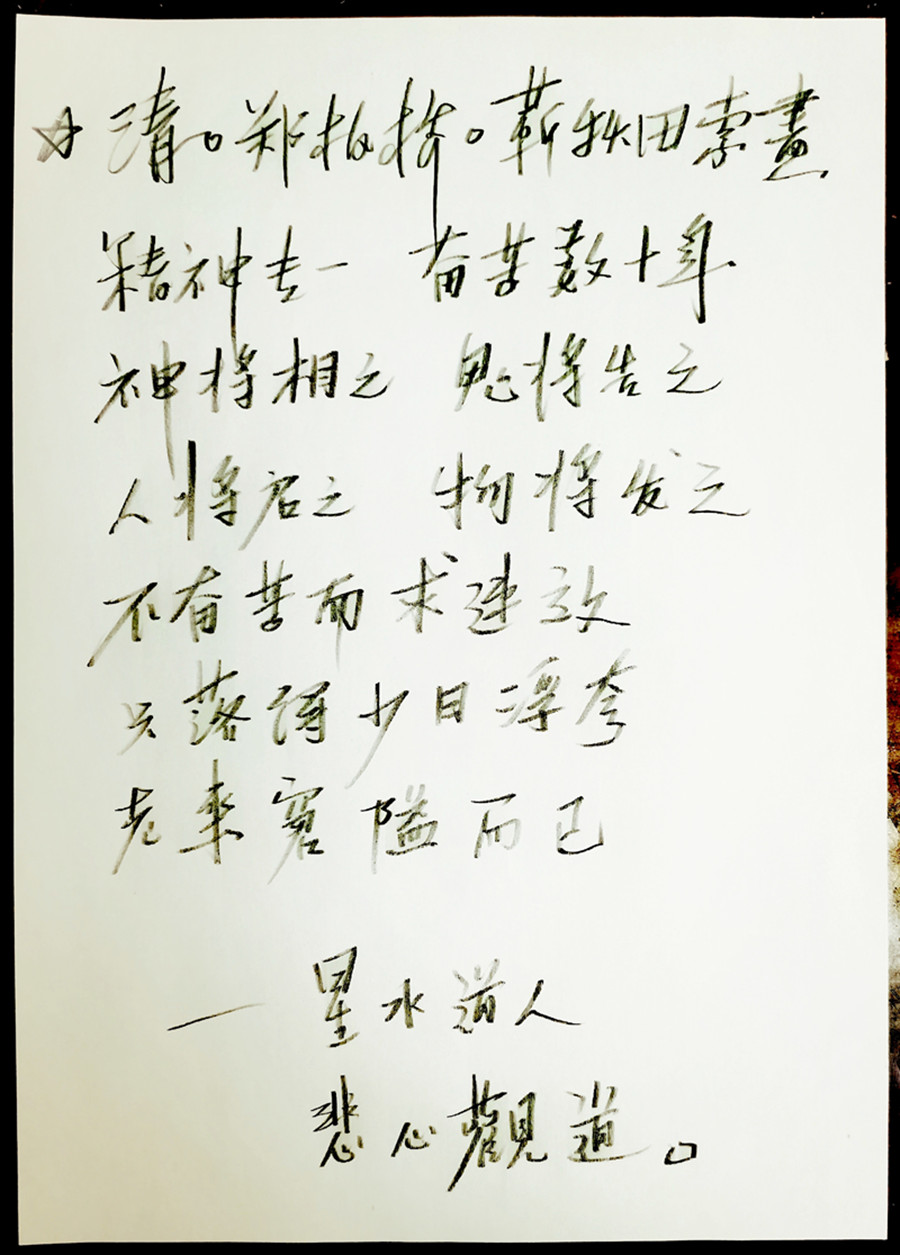 ☆清。郑板桥。靳秋田索畫
精神专一 奋苦数十年
神将相之 鬼将告之
人将启之 物将发之
不奋苦而求速效
只落得少日浮夸
老来窘隘而已
一星水道人
悲心觀道。